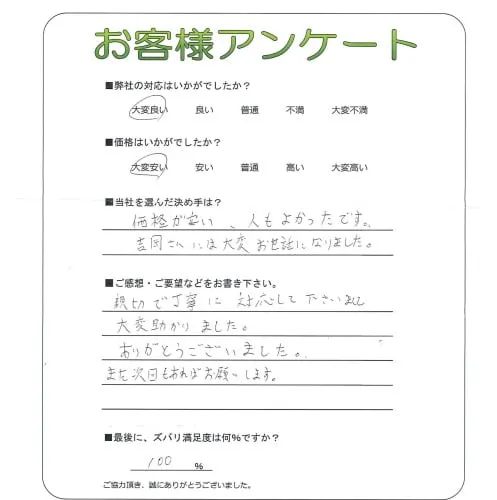 お客様アンケート
■弊社の対応はいかがでしたか？
大変良い 良い 普通 不満 大変不満
■価格はいかがでしたか？
大変安い 安い 普通 高い 大変高い
■当社を選んだ決め手は？
価格が安い、人もよかったです。
吉岡さんには大変お世話になりました。
■ご感想・ご要望などをお書き下さい。
親切で丁寧に対応して下さいまして
大変助かりました。
ありがとうございました。
また次回もあればお願いします。
■最後に、ズバリ満足度は何％ですか？
100 %
ご協力頂き、誠にありがとうございました。